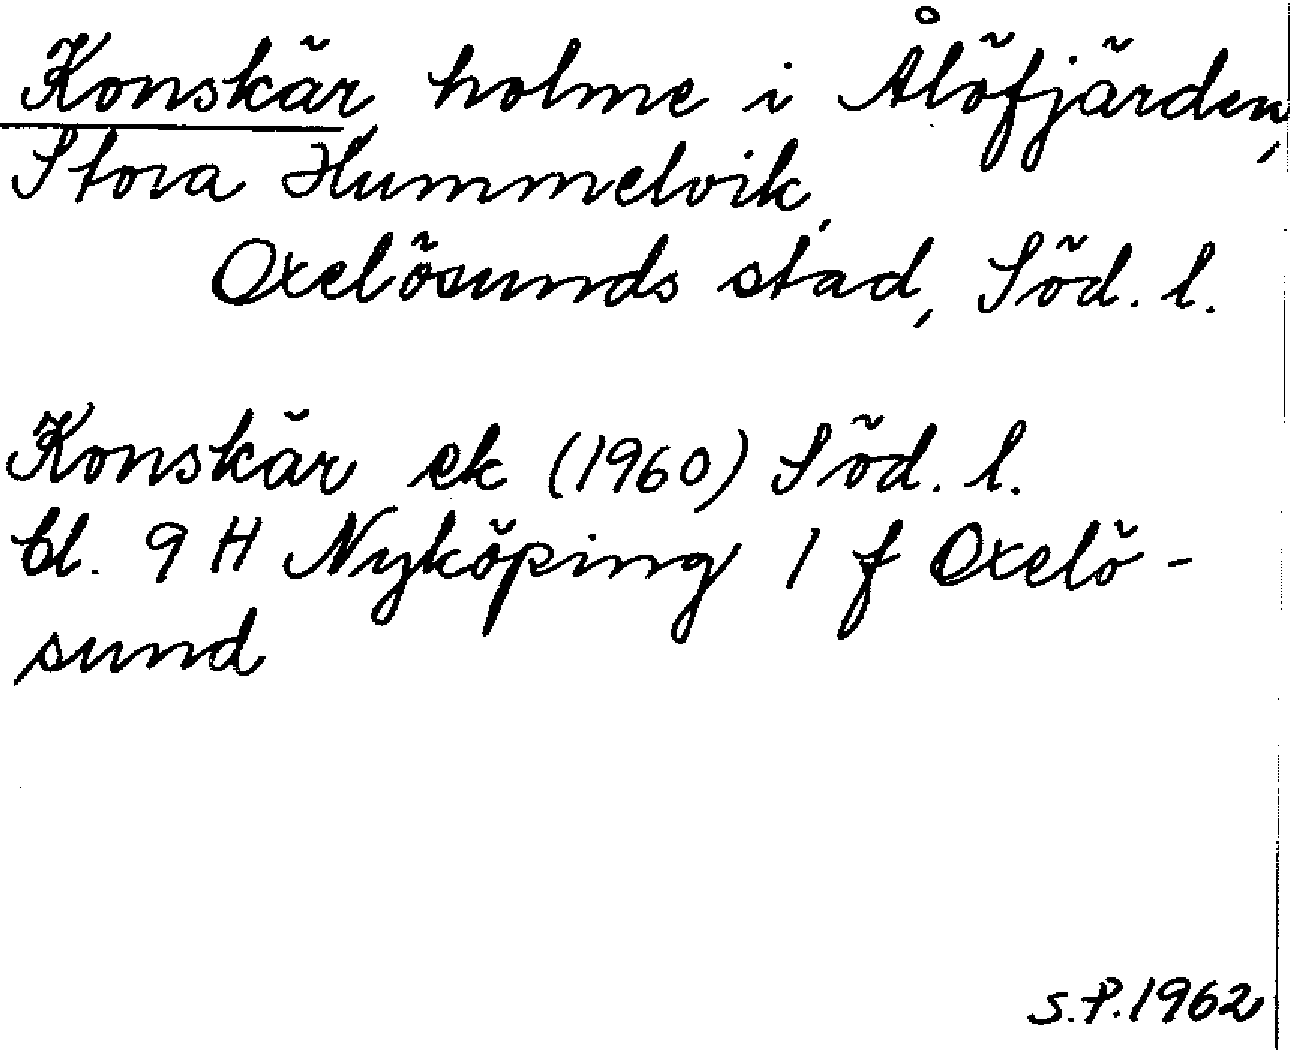 Konskär, holme i Ålöfjärden,
Stora Hummelvik,
Oxelösunds stad, Söd. l.
Konskär ek (1960) Söd. l.
bl. 9 H Nyköping 1 f Oxelö-
sund
S.P. 1962